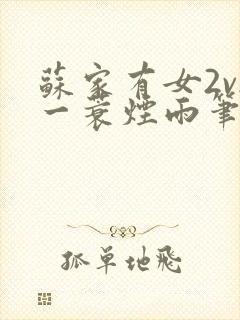 蘇家有女2v
一蓑煙雨筆
孤單地飛